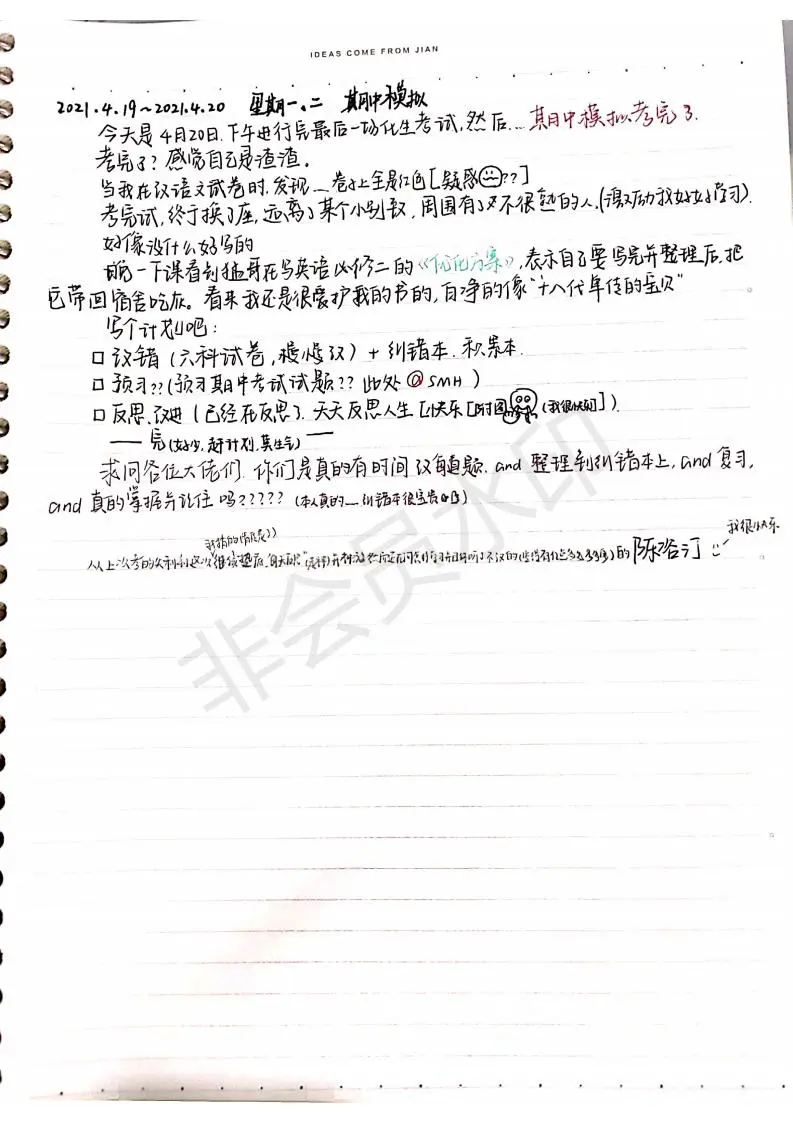 IDEAS COME FROM JIAN
2021.4.19~2021.4.20 星期一、二 期中模拟
今天是4月20日,下午进行完最后一场化生考试,然后...期中模拟考完了.
考完了?感觉自己是渣渣。
当我在改语文试卷时,发现__卷子上全是红色[疑惑??]
考完试,终于换了座,远离了某个小别致,周围有了又不很熟的人,(激励我好好学习).
好像没什么好写的
晚一下课看到猛哥在写英语必修二的《优化方案》,表示自己要写完并整理后,把
它带回宿舍吃灰。看来我还是很爱护我的书的,白净的像"十八代单传的宝贝"
写个计划吧:
□ 改错(六科试卷,慢慢改)+纠错本.积累本.
□ 预习??(预习期中考试试题??此处@SMH)
□ 反思、改进(已经在反思了.天天反思人生[小快乐[附图(我很快乐)]]).
—— 完(好少,赶计划,莫生气) ——
求问各位大佬们.你们是真的有时间改每道题.and 整理到纠错本上,and复习,
and 真的掌握并记住吗?????(本人真的__纠错本很宝贵
从上次考的
我很快乐